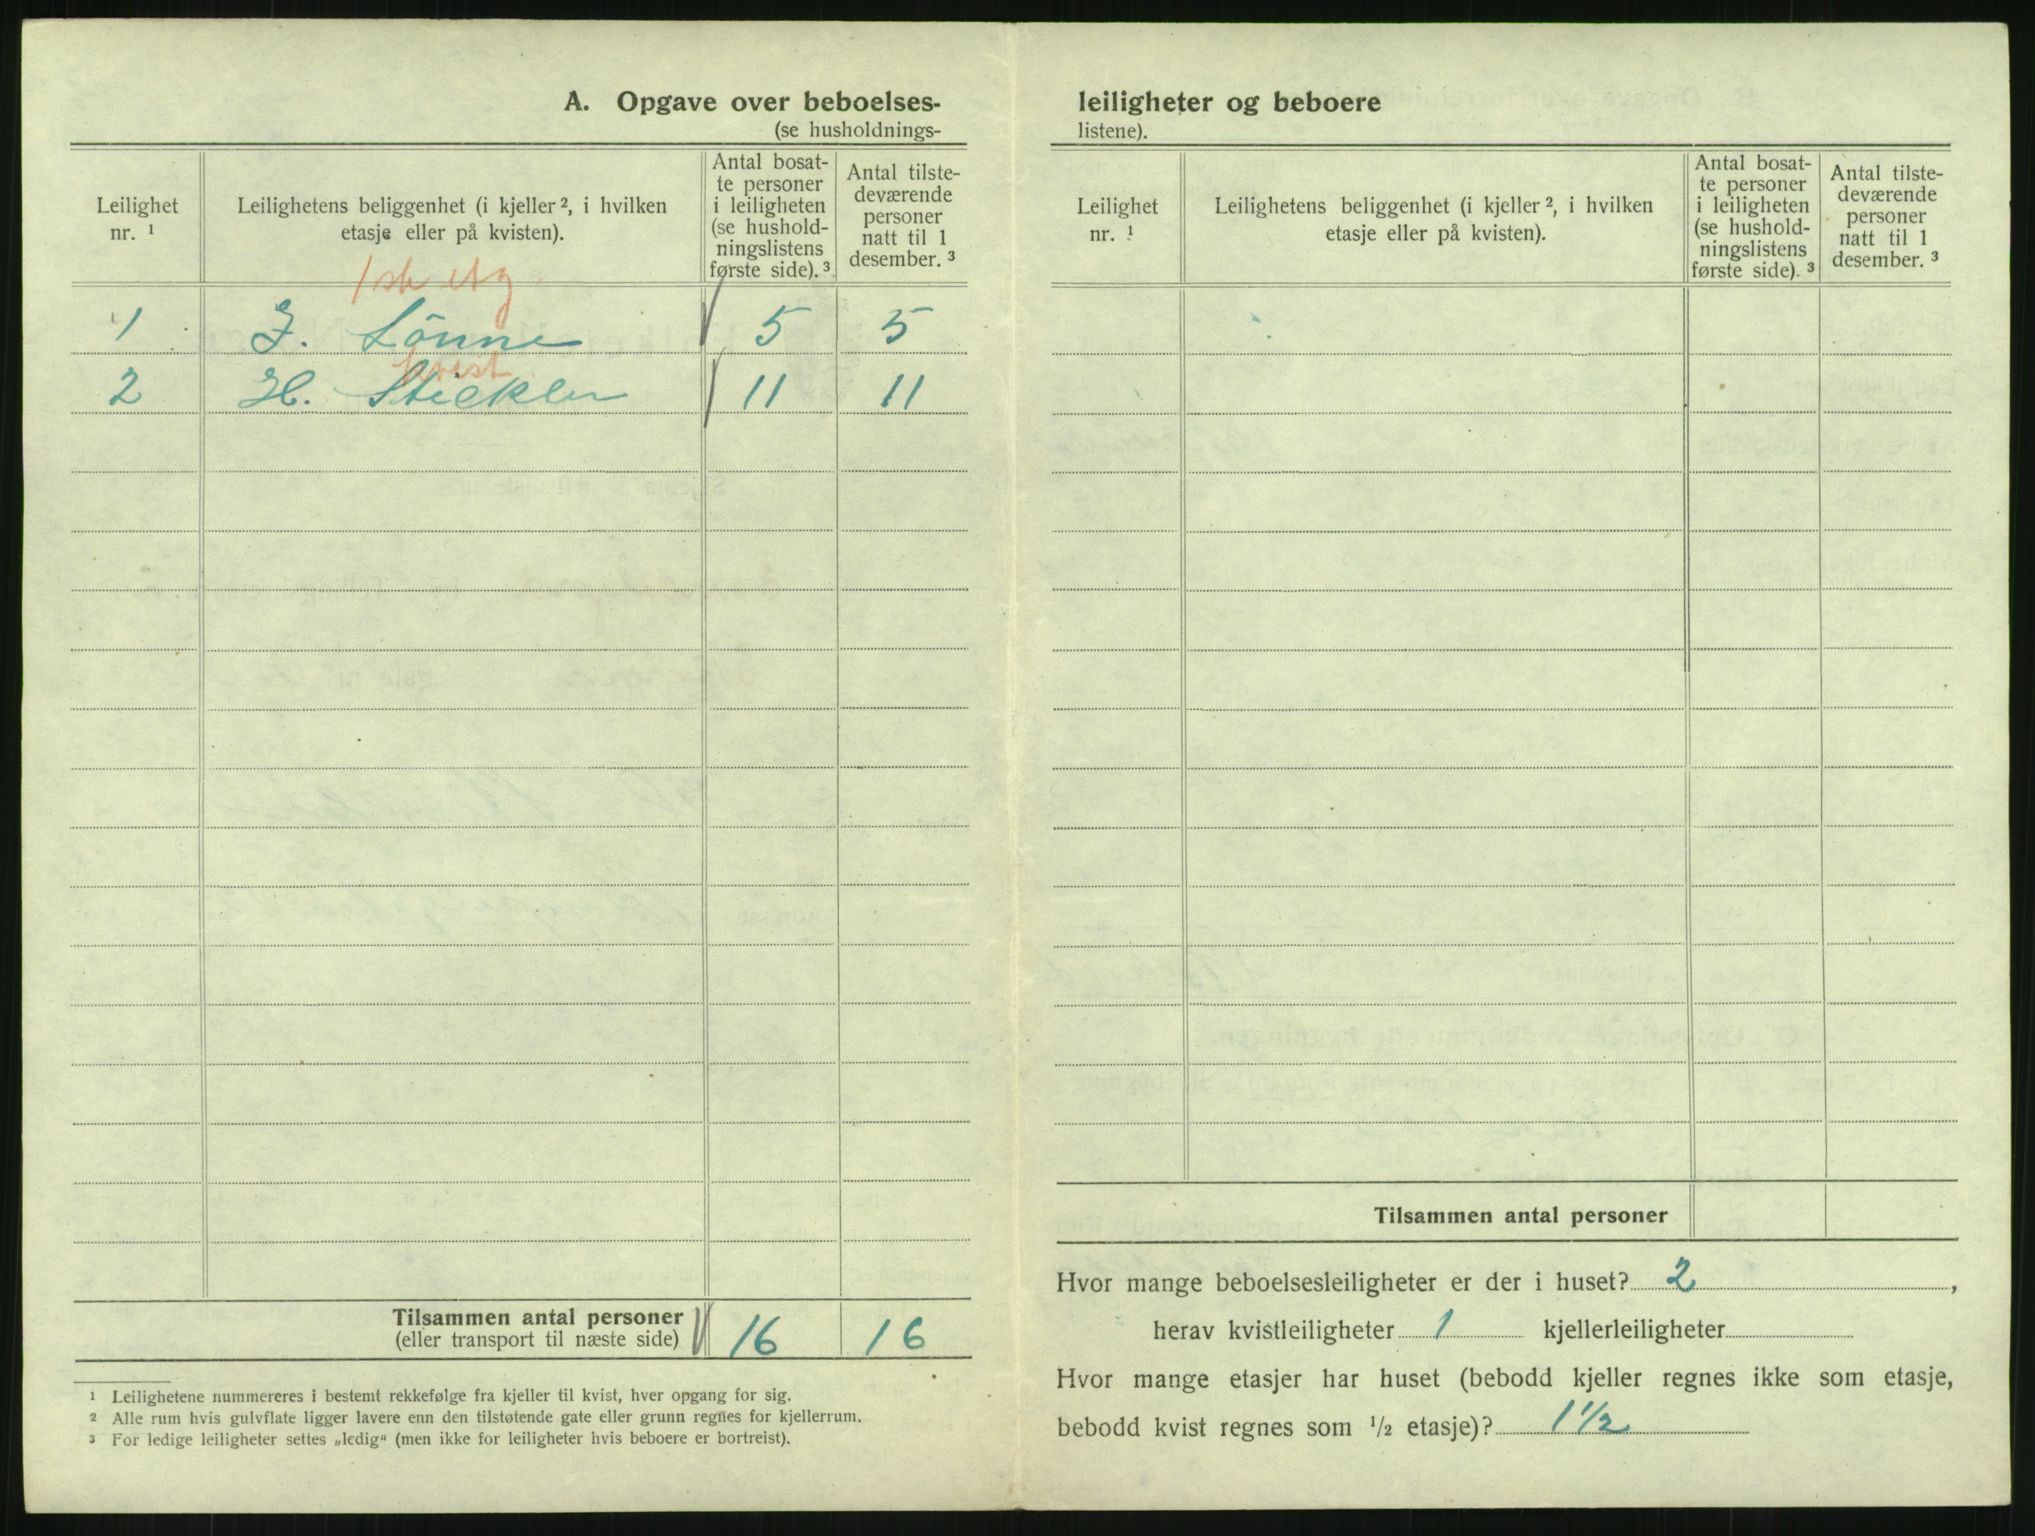 A. Opgave over beboelses-
(se husholdnings-
Leilighet nr. ¹
Leilighetens beliggenhet (i kjeller ², i hvilken etasje eller på kvisten).
Antal bosat-
te personer
i leiligheten
(se hushold-
ningslistens
første side). ³
Antal tilste-
deværende
personer
natt til 1
desember. ³
1ste etg.
1 J. Lönne 5 5
kvist
2 H. Stickler 11 11
Tilsammen antal personer 16 16
(eller transport til næste side)
¹ Leilighetene nummereres i bestemt rekkefølge fra kjeller til kvist, hver opgang for sig.
² Alle rum hvis gulvflate ligger lavere enn den tilstøtende gate eller grunn regnes for kjellerrum.
³ For ledige leiligheter settes „ledig“ (men ikke for leiligheter hvis beboere er bortreist).
leiligheter og beboere
listene).
Leilighet nr. ¹
Leilighetens beliggenhet (i kjeller ², i hvilken etasje eller på kvisten).
Antal bosat-
te personer
i leiligheten
(se hushold-
ningslistens
første side). ³
Antal tilste-
deværende
personer
natt til 1
desember. ³
Tilsammen antal personer
Hvor mange beboelsesleiligheter er der i huset? 2,
herav kvistleiligheter 1 kjellerleiligheter
Hvor mange etasjer har huset (bebodd kjeller regnes ikke som etasje,
bebodd kvist regnes som ½ etasje)? 1½